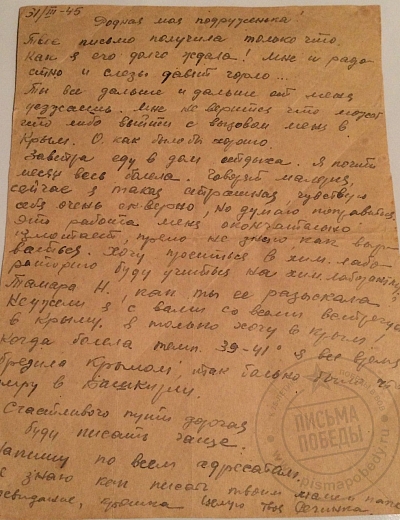 31/III-45
Родная моя подруженька!
Твоё письмо получила только что
Как я его долго ждала! Мне и радо
стно и слезы давят горло...
Ты все дальше и дальше от меня
уезжаешь. Мне не верится что может
что либо выйти с вызовом меня в
Крым. О, как было бы хорошо.
Завтра еду в дом отдыха. Я почти
месяц весь болела. Говорят малярия,
сейчас я такая страшная, чувствую
себя очень скверно, но думаю поправиться
Эта работа меня окончательно
измотает, прямо не знаю как выр
ваться. Хочу проситься в хим. лабо
раторию буду учиться на хим. лаборантку
Тамара Н. как ты ее разыскала
Неужели я с вами со всеми встречусь
в Крыму. Я только хочу в Крым!
Когда болела темп. 39-41° я все время
бредила Крымом, так больно было что
умру в Башкирии.
Счастливого пути дорогая
буду писать чаще.
Напишу по всем адресатам.
не знаю как писать твоим маме папе
свидание, твоя
ПИСЬМА
ПОБЕДЫ
www.pismapobedy.ru